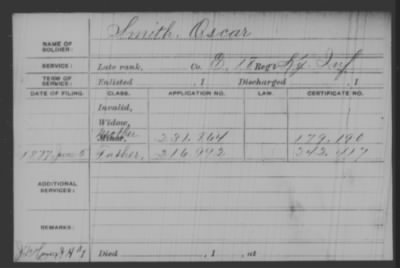 NAME OF SOLDIER: Smith, Oscar
SERVICE: Late rank, Co. E, 18 Reg't Ky. Inf
TERM OF SERVICE: Enlisted , 1 Discharged , 1
DATE OF FILING. CLASS. APPLICATION NO. LAW. CERTIFICATE NO.
Invalid,
Widow,
Mother
Minor, 231.864 179.190
1877 June 5 Father, 216.992 242.417
ADDITIONAL SERVICES:
REMARKS:
Died , 1 , at